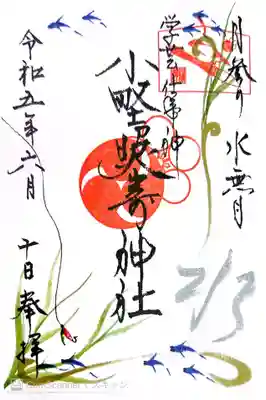 月参り 水無月
小野照崎神社
令和五年六月
十日 奉拝
CamScanner でスキャン